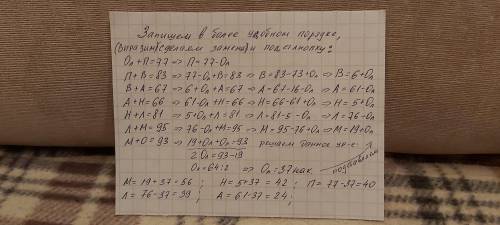 Запишем в более удобном порядке,
(выразим) сделаем замену и подстановку:
Ол+П=77 => П=77-Ол
П+В=83 => 77-Ол+В=83 => В=83-73+Ол => В=6+Ол
В+А=67 => 6+Ол+А=67 => А=61-16-Ол => А=61-Ол
А+Н=66 => 61-Ол+Н=66 => Н=66-61+Ол => Н=5+Ол
Н+Л=81 => 5+Ол+Л=81 => Л=81-5-Ол => Л=76-Ол
Л+М=95 => 76-Ол+М=95 => М=95-76+Ол => М=19+Ол
М+О=93 => 19+Ол+Ол=93 решаем данное ур-е:
2Ол=93-19
Ол=64:2 => Ол=37 как подставляем
М=19+37=56; Н=5+37=42; П=77-37=40
Л=76-37=39; А=61-37=24;